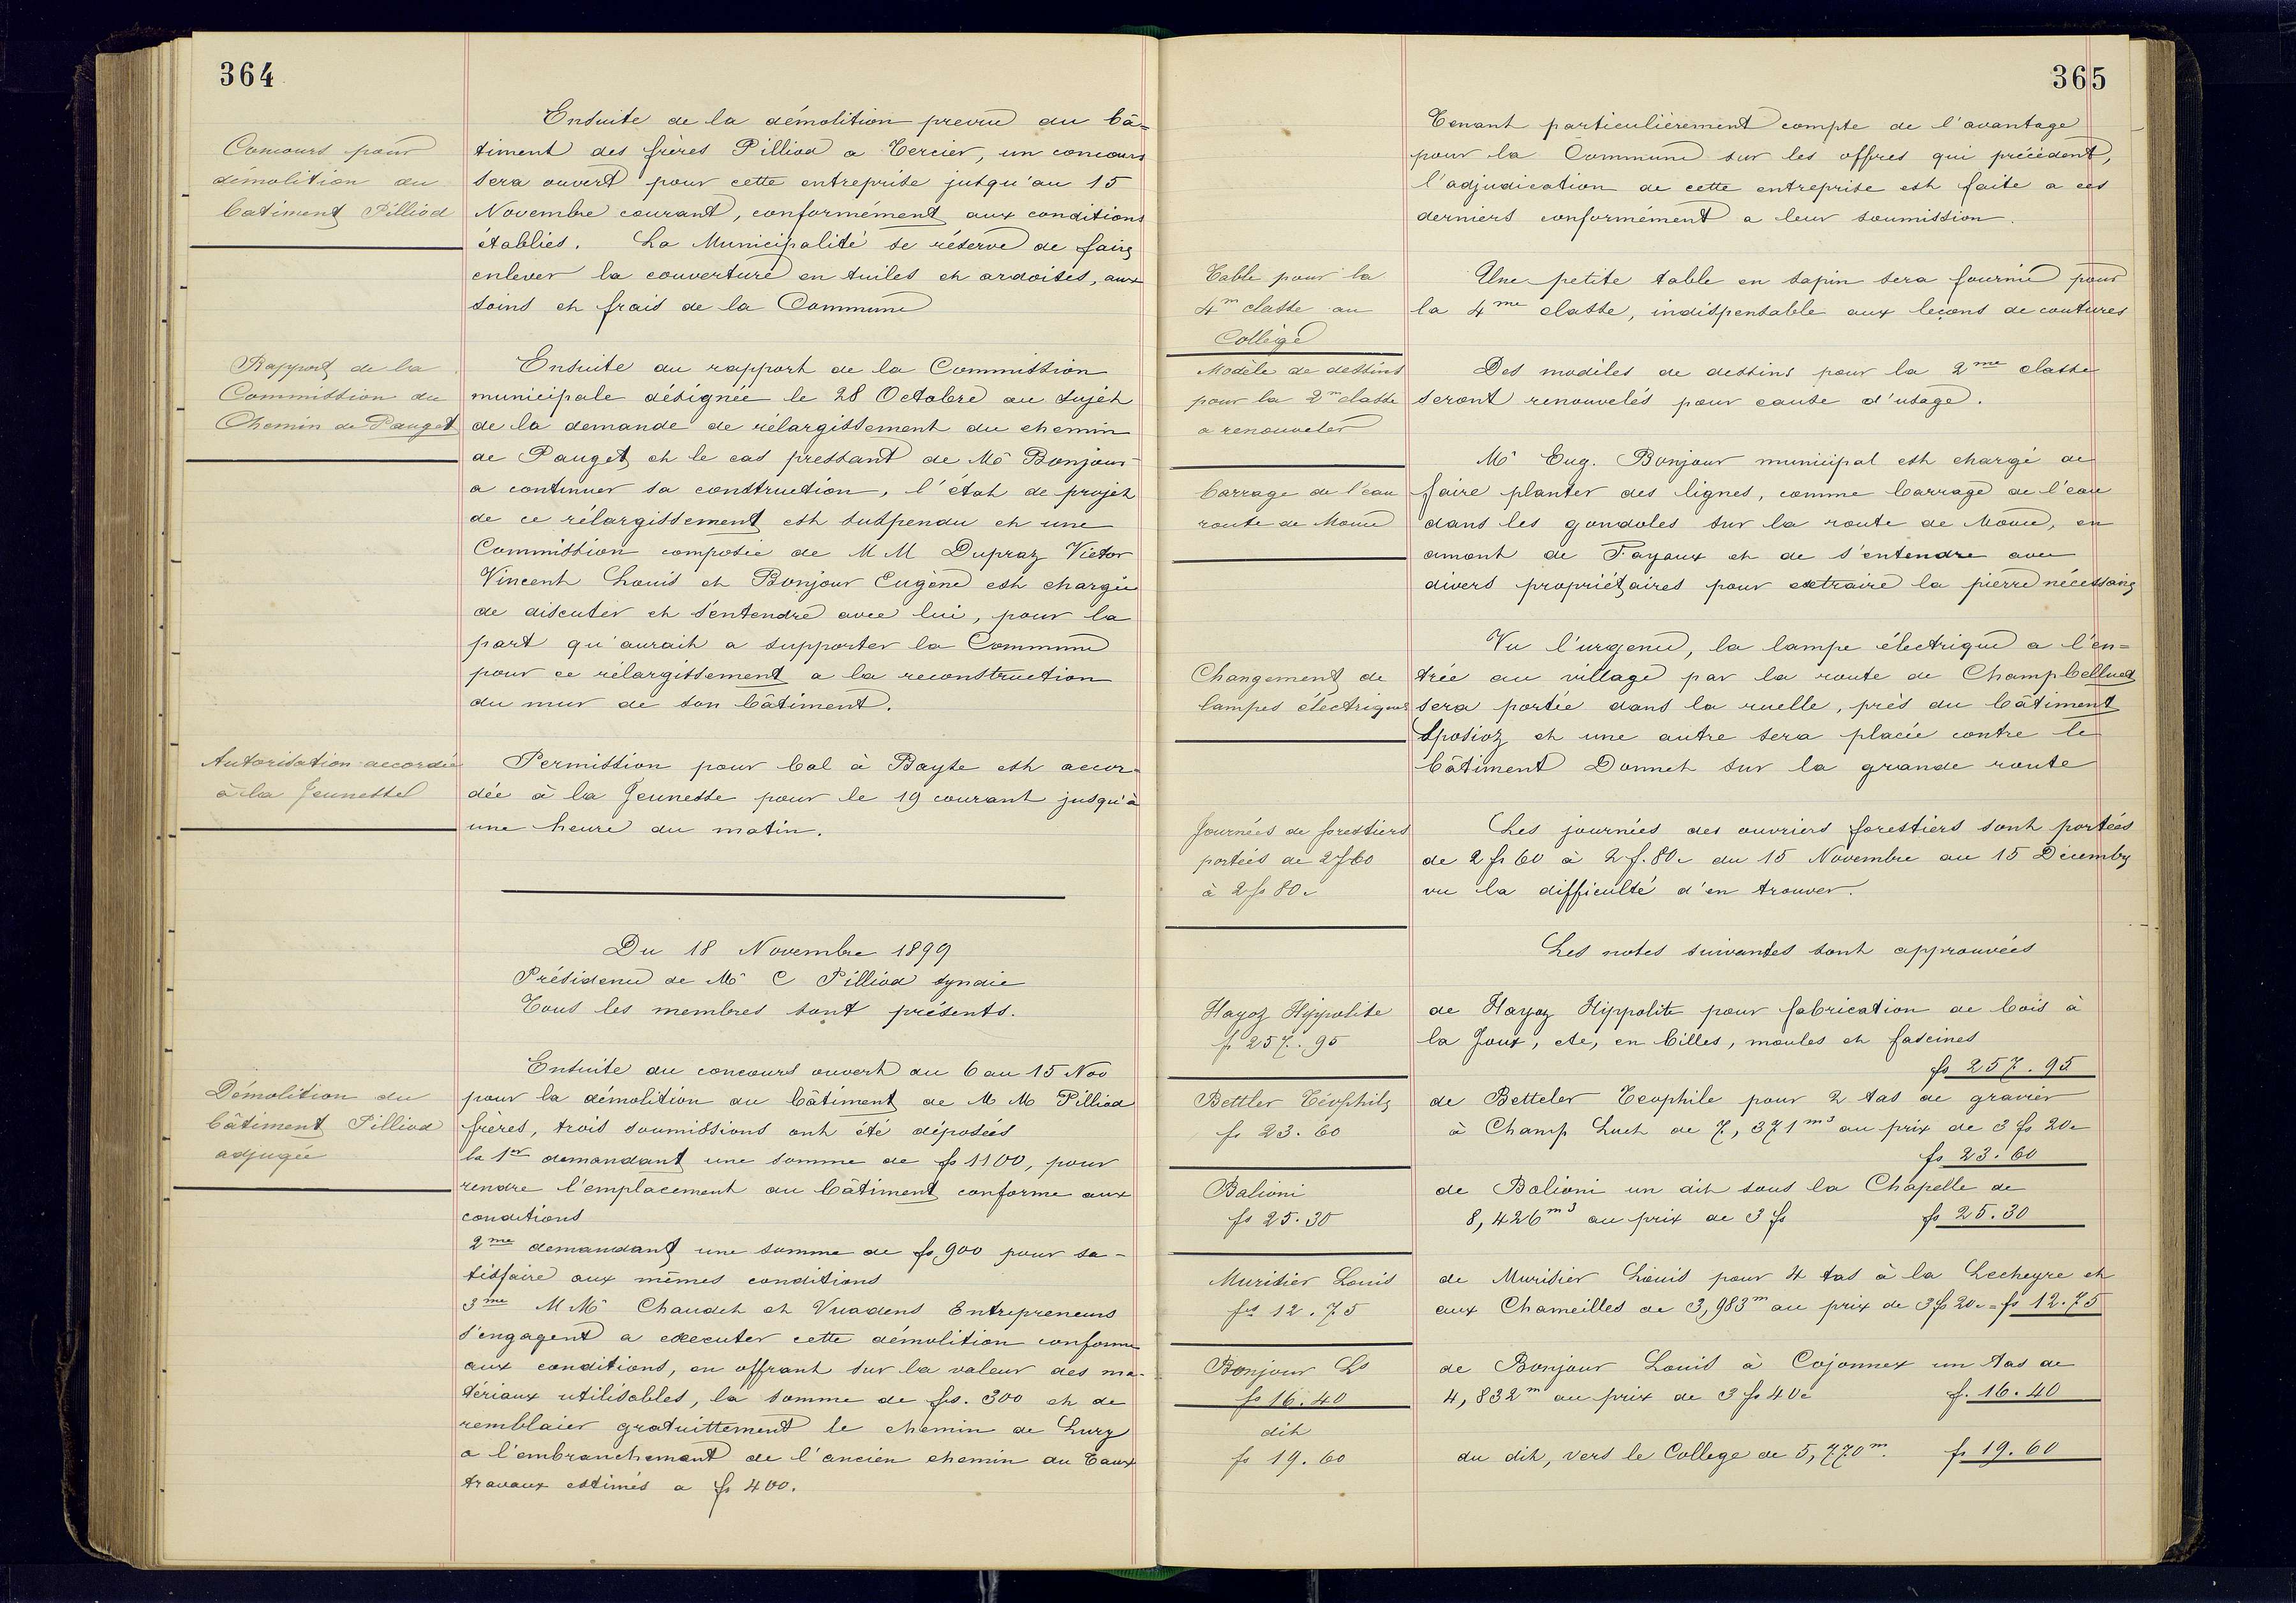 364
Concours pour
démolition du
batiment Pilliod
Ensuite de la démolition prevue du bâ=
timent des frères Pilliod a Tercier, un concours
sera ouvert pour cette entreprise jusqu'au 15
Novembre courant, conformément aux conditions
établies. La Municipalité se réserve de faire
enlever la couverture en tuiles et ardoises, aux
soins et frais de la Commune
Rapport de la
Commission du
Chemin de Pauget
Ensuite du rapport de la Commission
municipale désignée le 28 Octobre au sujet
de la demande de rélargissement du chemin
de Pauget et le cas pressant de Mr Bonjour
a continuer sa construction, l'état de projet
de ce rélargissement est suspendu et une
Commission composée de MM Dupraz Victor
Vincent Louis et Bonjour Eugène est chargée
de discuter et s'entendre avec lui, pour la
part qu'aurait a supporter la Commune
pour ce rélargissement a la reconstruction
du mur de son bâtiment.
Autorisation accordée
à la Jeunesse
Permission pour bal à Bayse est accor=
dée à la Jeunesse pour le 19 courant jusqu'à
une heure du matin.
Du 18 Novembre 1899
Présidence de Mr C Pilliod syndic
Tous les membres sont présents.
Démolition du
bâtiment Pilliod
adjugée
Ensuite du concours ouvert du 6 au 15 Nov
pour la démolition du bâtiment de M M Pilliod
frères, trois soumissions ont été déposées
la 1er demandant une somme de fs 1100, pour
rendre l'emplacement du bâtiment conforme aux
conditions
2me demandant une somme de fs 900 pour sa-
tisfaire aux mêmes conditions
3me M Mrs Chaudet et Vuadens Entrepreneurs
s'engagent a executer cette démolition conforme
aux conditions, en offrant sur la valeur des ma-
tériaux utilisables, la somme de frs. 300 et de
remblaier gratuittement le chemin de Lurz
a l'embranchement de l'ancien chemin du Taux
travaux estimés a fs 400.
365
Tenant particulièrement compte de l'avantage
pour la Commune sur les offres qui précèdent,
l'adjudication de cette entreprise est faite a ces
derniers conformément a leur soumission.
Table pour la
4m classe au
Collège
Une petite table en sapin sera fournie pour
la 4me classe, indispensable aux leçons de coutures
Modèle de dessins
pour la 2m classe
a renouveler
Des modèles de dessins pour la 2me classe
seront renouvelés pour cause d'usage.
barrage de l'eau
route de Moue
Mr Eug. Bonjour municipal est chargé de
faire planter des lignes, comme barrage de l'eau
dans les gondoles sur la route de Moue, en
amont de Fayaux et de s'entendre avec
divers propriétaires pour extraire la pierre nécessaire
Changement de
lampes électriques
Vu l'urgence, la lampe électrique a l'en=
trée du village par la route de Champbelluet
sera portée dans la ruelle, près du bâtiment
Sposioz et une autre sera placée contre le
bâtiment Donnet sur la grande route
Journées de forestiers
portées de 2f 60
à 2 fs 80c
Les journées des ouvriers forestiers sont portées
de 2 fs 60 à 2 f. 80c du 15 Novembre au 15 Décembre
vu la difficulté d'en trouver.
Les notes suivantes sont approuvées
Hayoz Hippolite
fs 257.95
de Hayoz Hippolite pour fabrication de bois à
la Joux, etc, en billes, moules et fascines
fs 257.95
Bettler Téophile
fs 23.60
de Betteler Teophile pour 2 tas de gravier
à Champ Luet de 7,371m3 au prix de 3 fs 20c
fs 23.60
Balioni
fs 25.30
de Balioni un dit sous la Chapelle de
8,426m3 au prix de 3 fs fs 25.30
Murisier Louis
frs 12.75
de Murisier Louis pour 4 tas à la Lecheyre et
aux Chameilles de 3,983m au prix de 3 fs 20c = fs 12.75
Bonjour Ls
fs 16.40
de Bonjour Louis à Cojonnex un tas de
4,832m au prix de 3 fs 40c f. 16.40
dit
fs 19.60
du dit, vers le College de 5,770m. fs 19.60